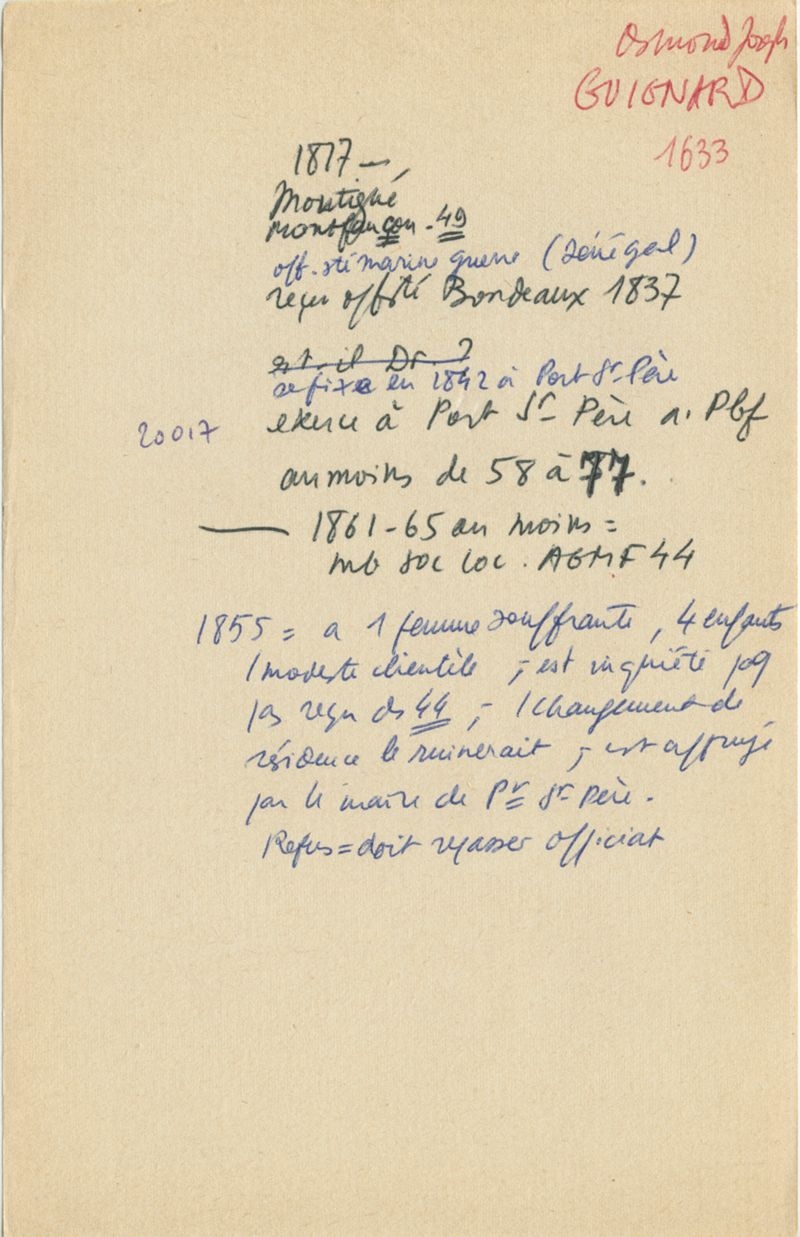 Osmond Joseph
GUIGNARD
1633
1817 —,
Montigné
montfaucon. 49
off. sté marine guerre (Sénégal)
reçu off sté Bordeaux 1837
est-il Dr. ?
se fixe en 1842 à Port St-Père
20017
exerce à Port St-Père a. Pbf
au moins de 58 à 77.
— 1861-65 au moins =
mb soc loc. AGMF 44
1855 = a 1 femme souffrante, 4 enfants
1 modeste clientèle ,- est inquiété pq
pas reçu ds 44 ,- 1 changement de
résidence le ruinerait ,- est appuyé
par le maire de Pt St-Père.
Refus = doit repasser officiat